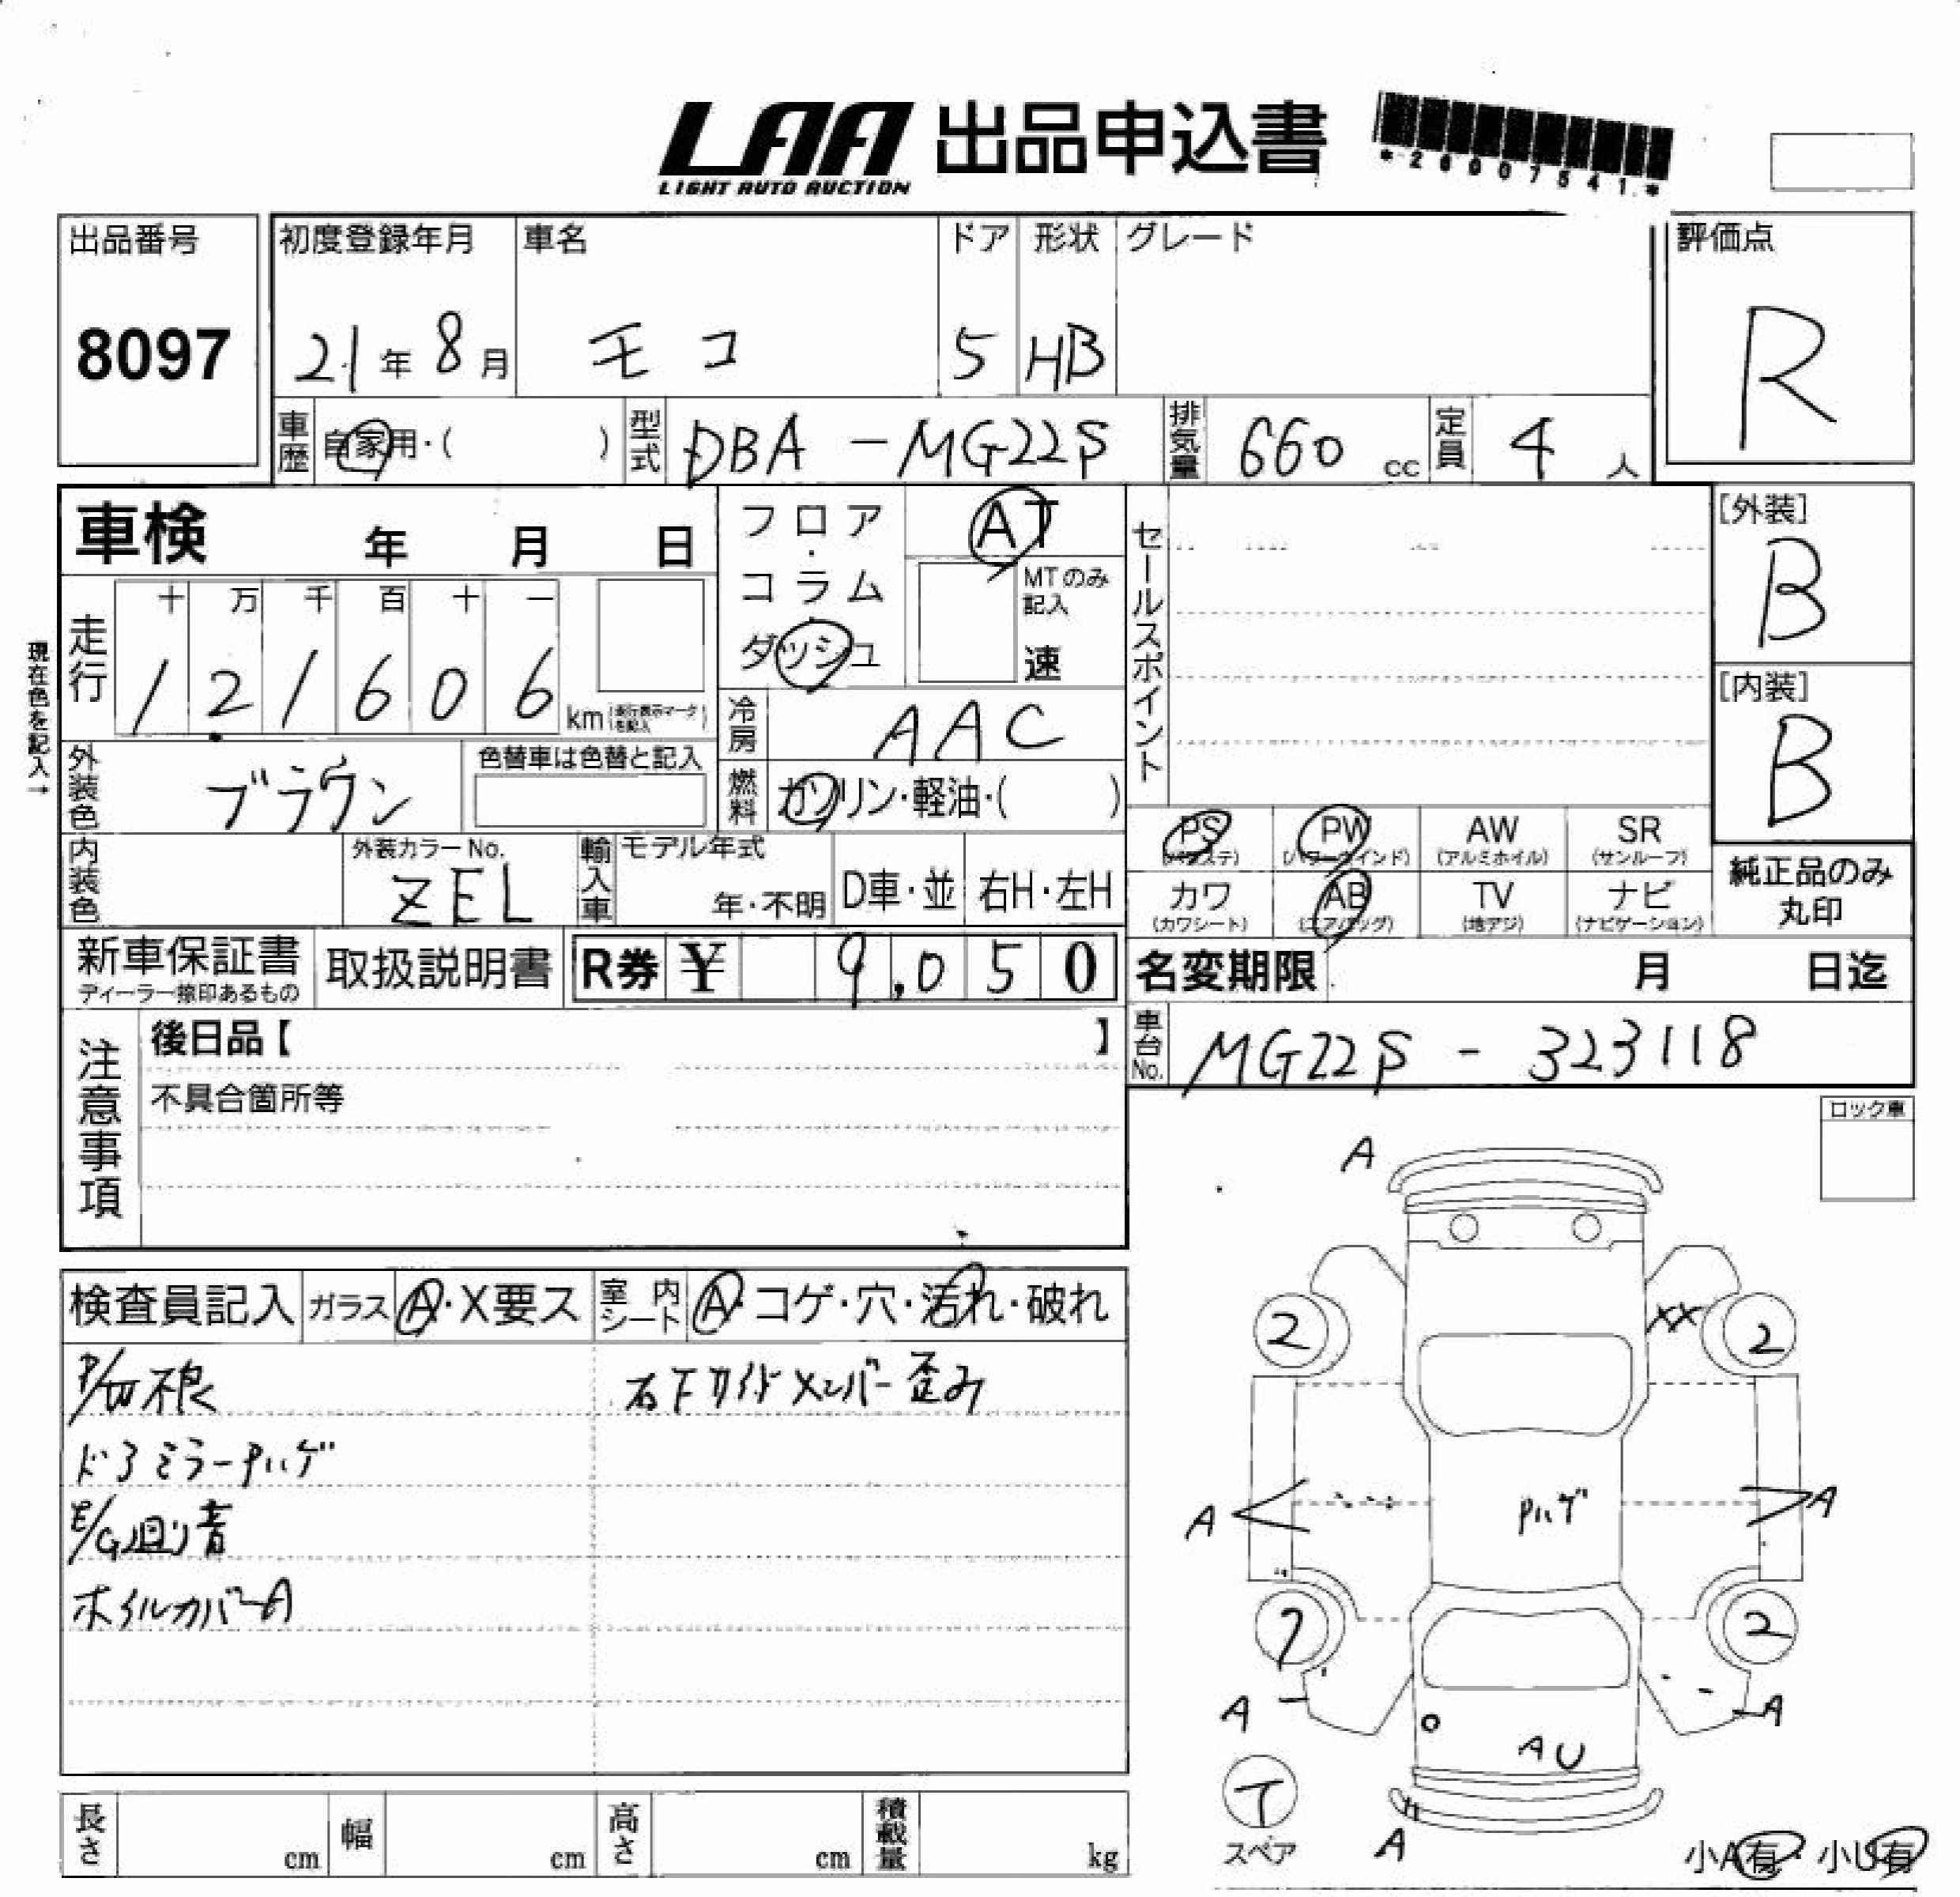 LAA 出品申込書
LIGHT AUTO AUCTION
*26007541*
出品番号 初度登録年月 車名 ドア 形状 グレード 評価点
8097 21年 8月 モコ 5 HB R
車歴 自家用・( ) 型式 DBA-MG22S 排気量 660 cc 定員 4 人
車検 年 月 日
フロア・コラム・ダッシュ
AT
MTのみ記入
速
セールスポイント
[外装]
B
[内装]
B
現在色を記入→
走行
十 万 千 百 十 一
1 2 1 6 0 6 km (走行表示マークを記入)
冷房 AAC
外装色 ブラウン 色替車は色替と記入
燃料 ガソリン・軽油・( )
内装色
外装カラーNo.
ZEL
輸入車 モデル年式
年・不明 D車・並 右H・左H
PS PW AW SR
(パワステ) (パワーウインド) (アルミホイル) (サンルーフ)
カワ AB TV ナビ
(カワシート) (エアバッグ) (地デジ) (ナビゲーション)
純正品のみ
丸印
新車保証書 取扱説明書 R券 ¥ 9,050
ディーラー捺印あるもの
名変期限 月 日迄
車台No. MG22S-323118
注意事項
後日品【 】
不具合箇所等
ロック車
検査員記入 ガラス A・X要ス 室内シート A・コゲ・穴・汚れ・破れ
P/W不良 右下サイドメンバー歪み
ドアミラーPハゲ
E/G廻り音
ホイルカバーA
A
XX
2 2
A Pハゲ A
2
A A
AU
スペア
A
小A有・小U有
長さ cm 幅 cm 高さ cm 積載量 kg